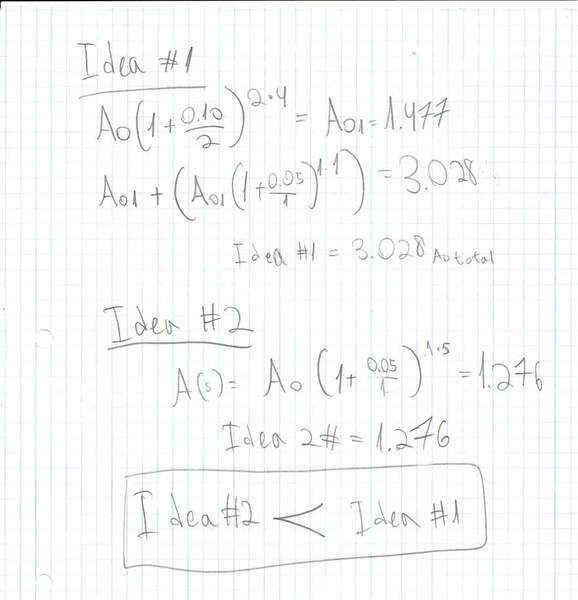 Idea #1
A₀(1+0.10/2)^2·4 = A₀₁=1.477
A₀₁ + (A₀₁(1+0.05/1)^1·1) = 3.028
Idea #1 = 3.028 A₀ total
Idea #2
A(5)= A₀ (1+0.05/1)^1·5 =1.276
Idea 2# = 1.276
Idea #2 < Idea #1